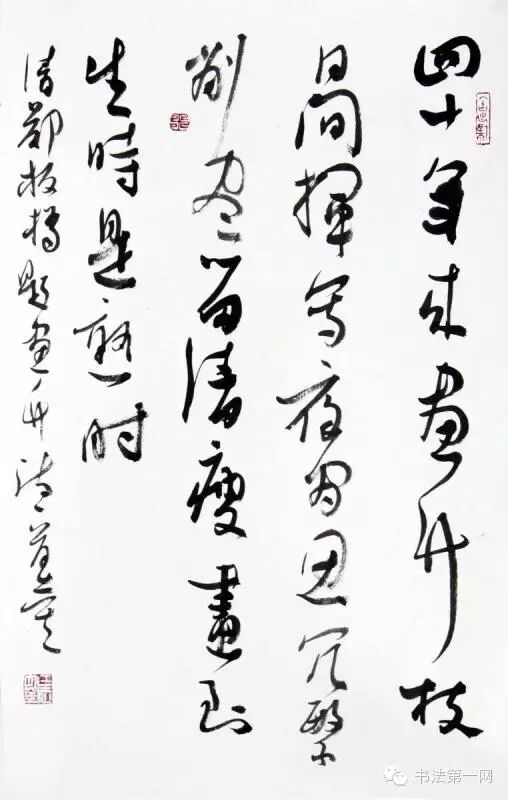 四十年来画竹枝
日间挥写夜间思冗繁
削尽留清瘦畫到
生時是熟时
清郑板桥题画竹诗
书法第一网